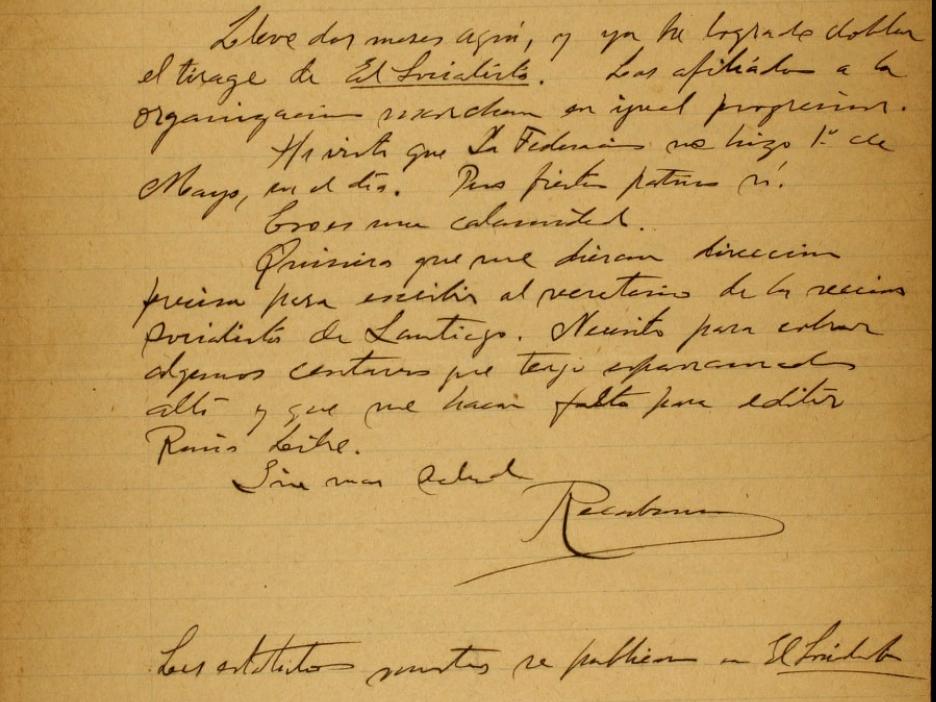 Llevo dos meses aquí, y ya he logrado doblar
el tirage de El Socialista. Los afiliados a la
organización marchan en igual progresion.
He visto que La Federacion no hizo 1º de
Mayo, en el dia. Pero fiestas patrias sí.
Eso es una calamidad.
Quisiera que me dieran direccion
precisa para escribir al secretario de la seccion
socialista de Santiago. Necesito para cobrar
algunos centavos que tengo
allá y que me hacen falta para editar
Rusia
Sin mas salud
Recabarren
Los estatutos se publican en El Socialista